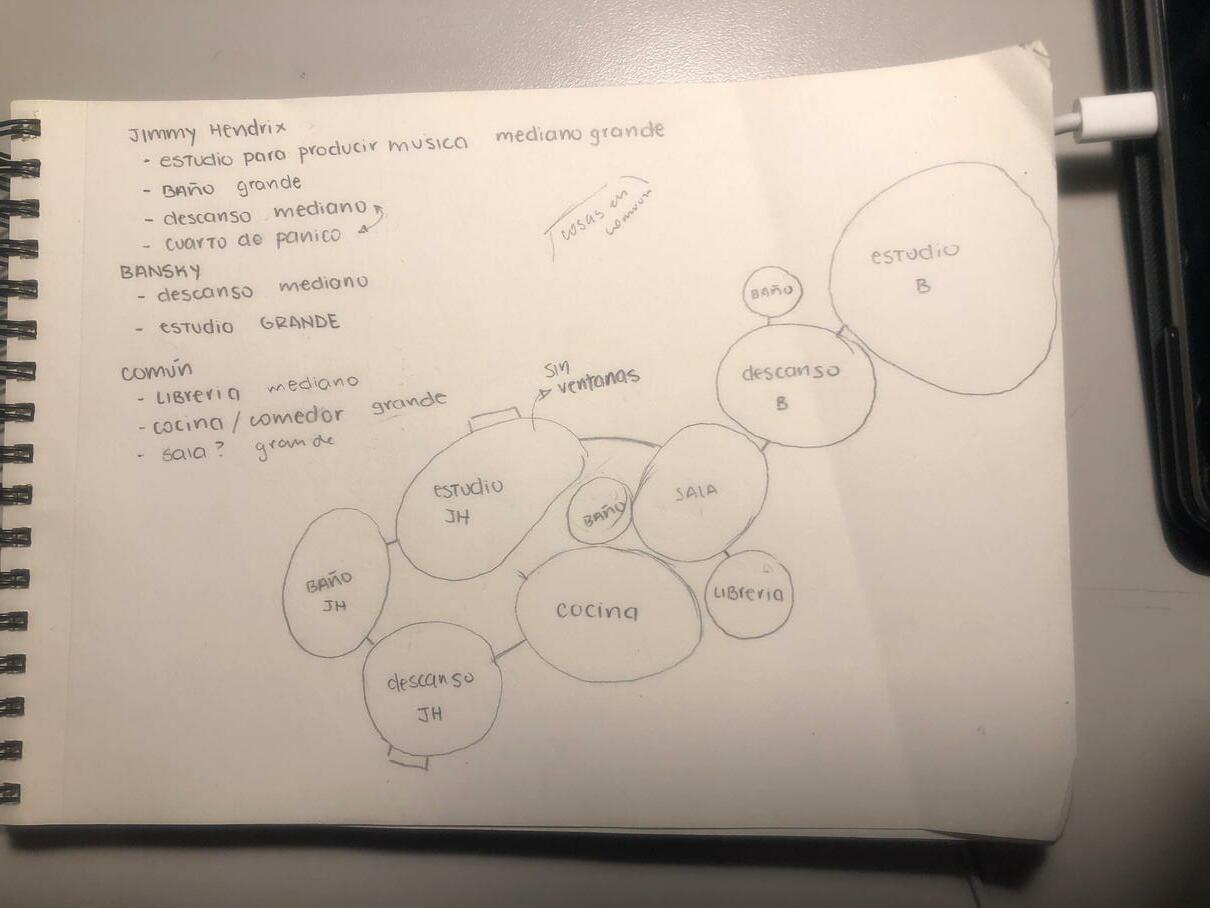 Jimmy Hendrix
- estudio para producir musica mediano grande
- Baño grande
- descanso mediano
- cuarto de panico
BANSKY
- descanso mediano
- estudio GRANDE
común
- Libreria mediano
- cocina / comedor grande
- sala? grande
cosas en
común
sin
ventanas
estudio
B
BAÑO
descanso
B
estudio
JH
BAÑO
SALA
BAÑO
JH
cocina
LIBreria
descanso
JH